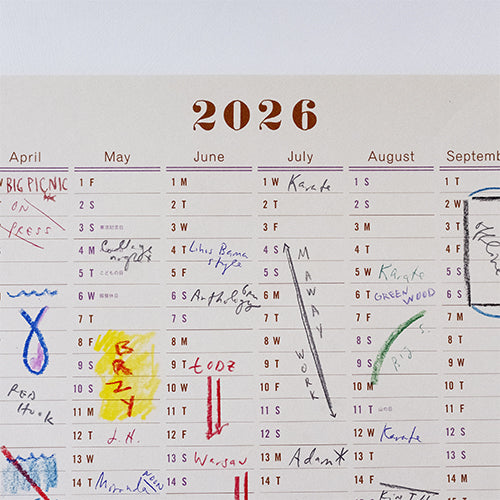 2026
April
May
June
July
August
Septemb
BIG PICNIC
ON
PRESS
RED
HOOK
1 F
2 S
3 S 憲法記念日
4 M
5 T こどもの日
6 W 振替休日
7 T
8 F
9 S
10 S
11 M
12 T L.H.
13 W
14 T NOON
BRZY
1 M
2 T
3 W
4 T
5 F
6 S Anthology 6pm
7 S
8 M
9 T ŁODZ
10 W
11 T
12 F
13 S Warsaw
14 S
1 W Karate
2 T
3 F
4 S
5 S
6 M
7 T
8 W
9 T
10 F
11 S
12 S
13 M Adam
14 T
MAWAY
WORK
1 S
2 S
3 M
4 T
5 W Karate
6 T GREENWOOD
7 F
8 S
9 S
10 M
11 T 山の日
12 W Karate
13 T
14 F
1 T
2 W
3 T
4 F
5 S
6 S
7 M
8 T
9 W
10 T
11 F
12 S
13 S
14 M